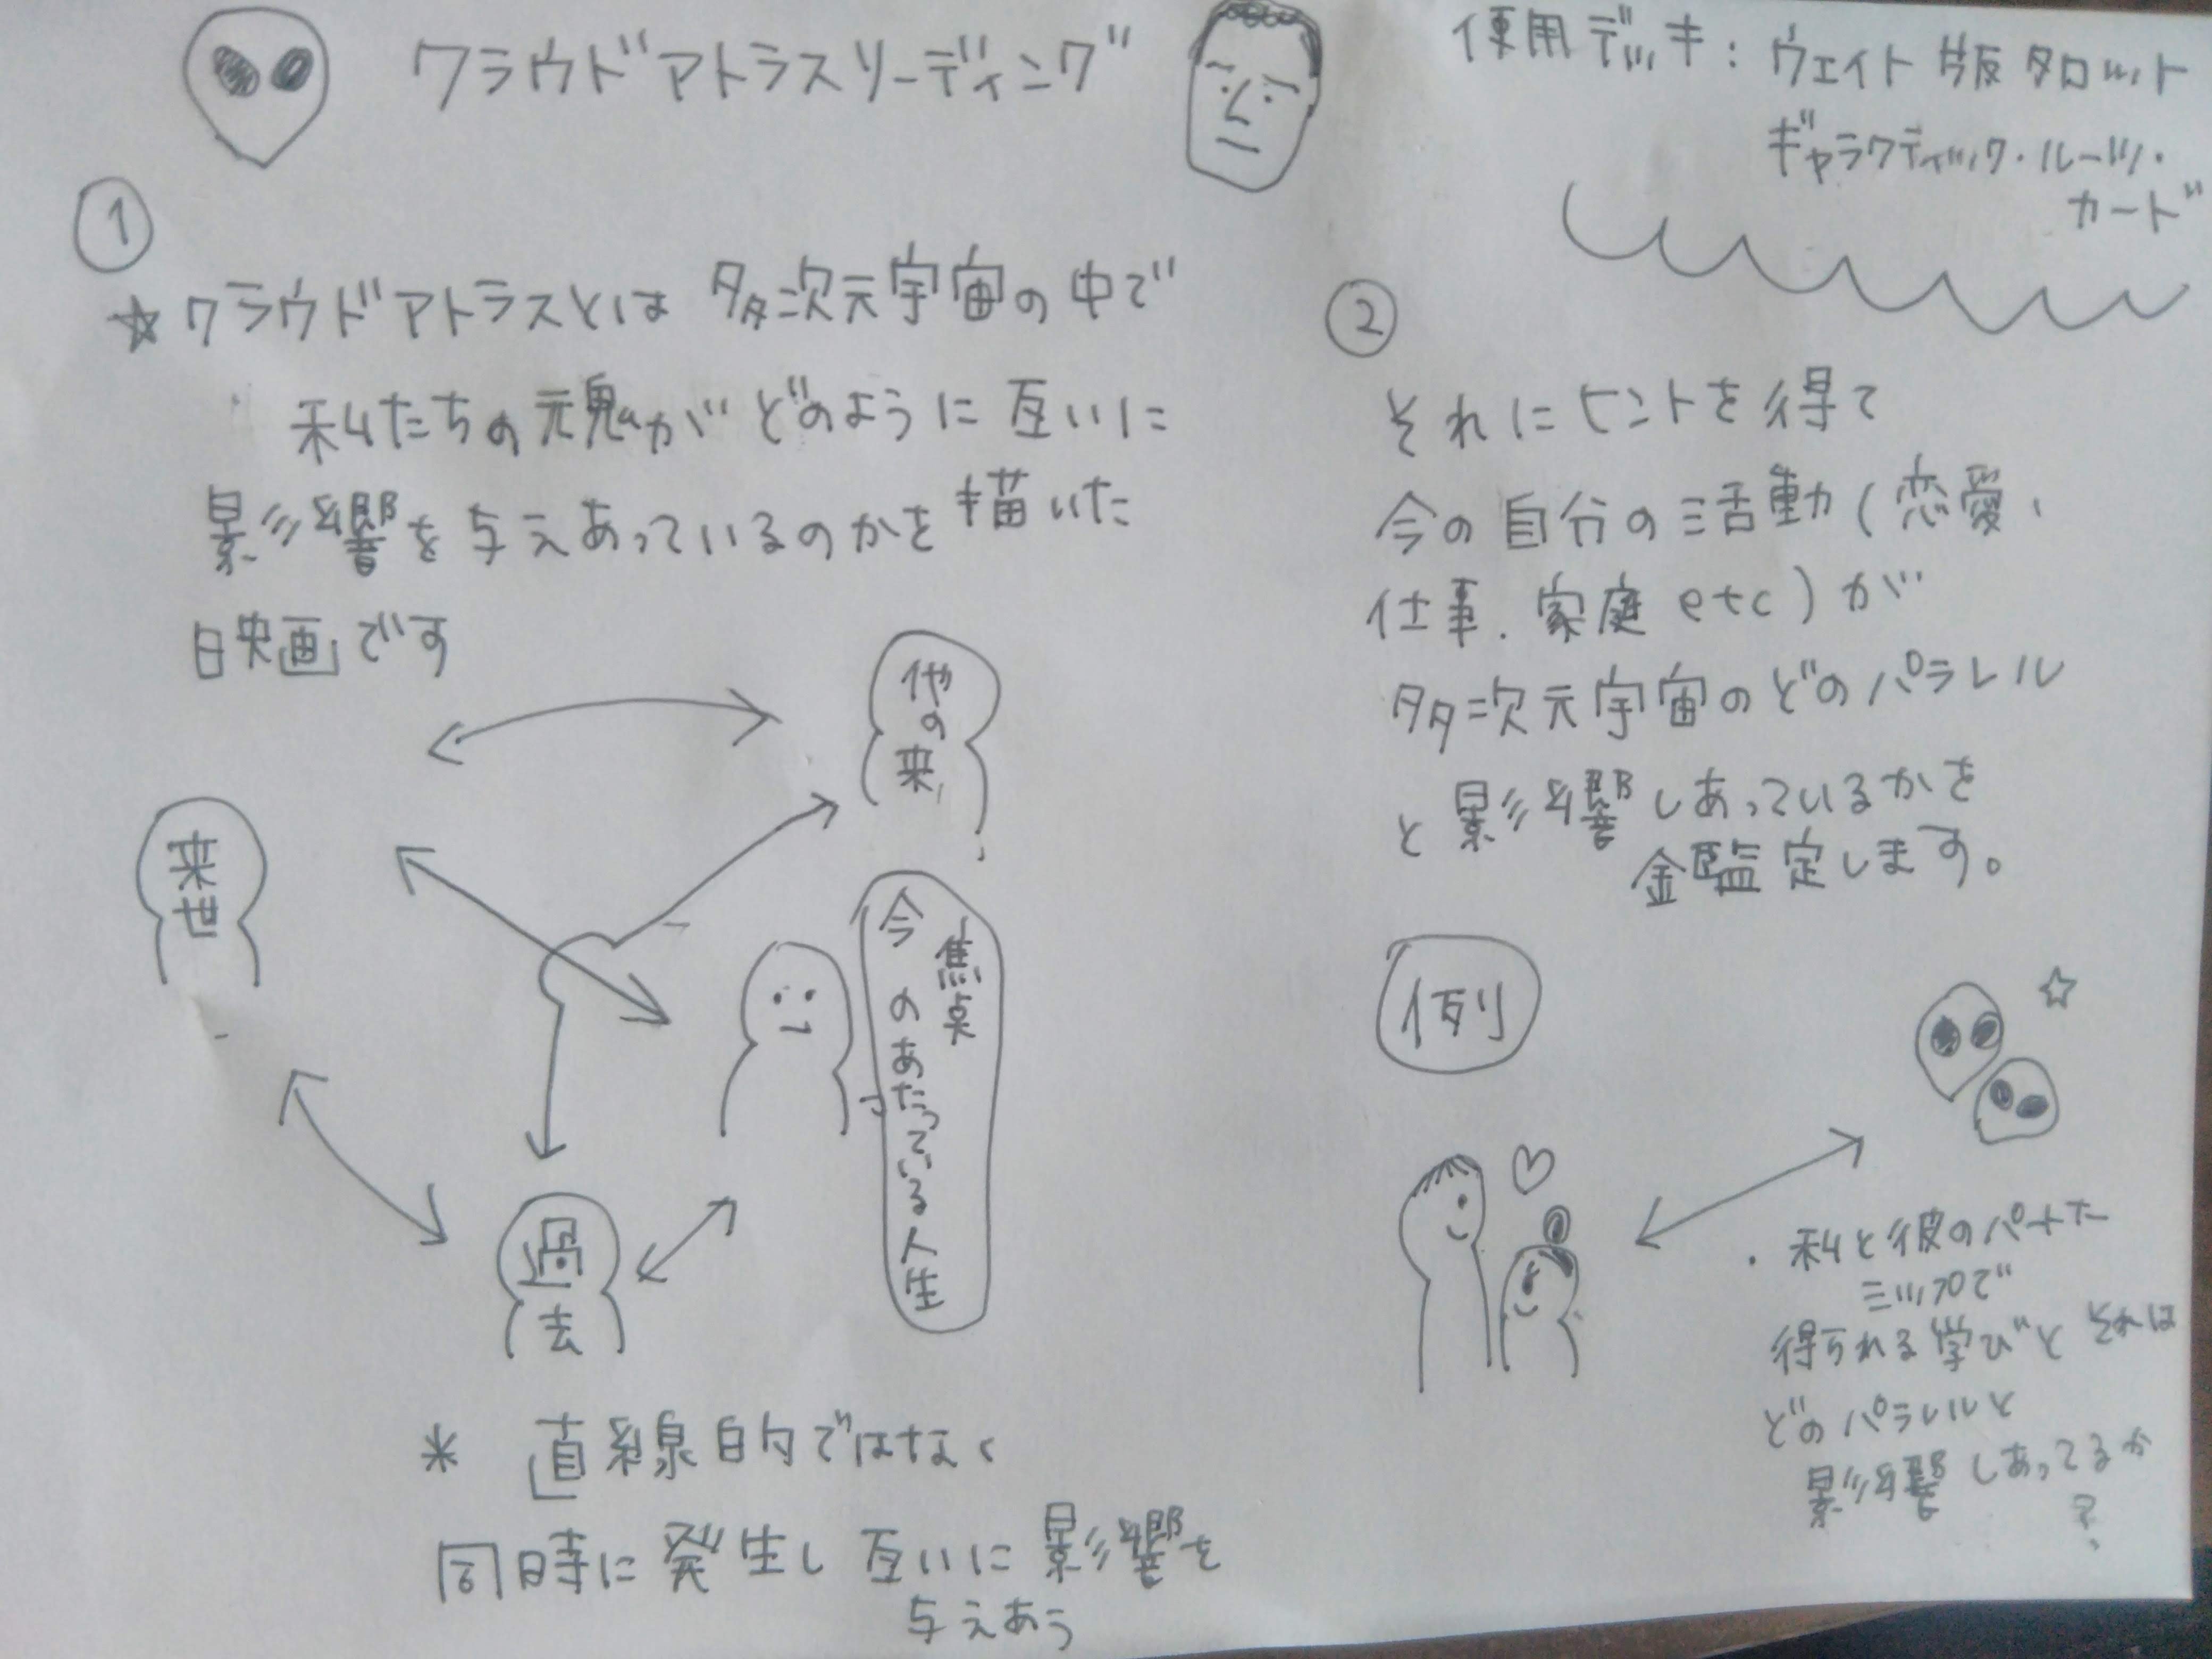 クラウドアトラスリーディング
使用デッキ：ウェイト版タロット
ギャラクティック・ルーツ・
カード
①
☆クラウドアトラスとは多次元宇宙の中で
私たちの魂がどのように互いに
影響を与えあっているのかを描いた
映画です
他の来
来世
今
焦点
のあたっている人生
過去
＊直線的ではなく
同時に発生し互いに影響を
与えあう
②
それにヒントを得て
今の自分の活動(恋愛、
仕事．家庭etc)が
多次元宇宙のどのパラレル
と影響しあっているかを
鑑定します。
例
・私と彼のパート
ミップで
得られる学びとそれは
どのパラレルと
影響しあってるか
？